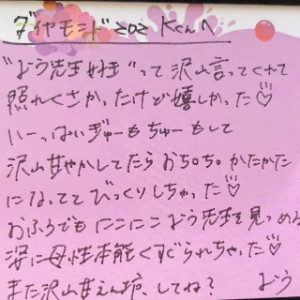 ダイヤモンド202 Kくんへ
"よう先生好き"って沢山言ってくれて
照れくさかったけど嬉しかった♡
いーっぱいぎゅーもちゅーもして
沢山甘やかしてたらおち○ち○かたかた
になっててびっくりしちゃった♡
おふろでもにこにこよう先生を見つめる
姿に母性本能くすぐられちゃった♡
また沢山甘えん坊、してね? よう